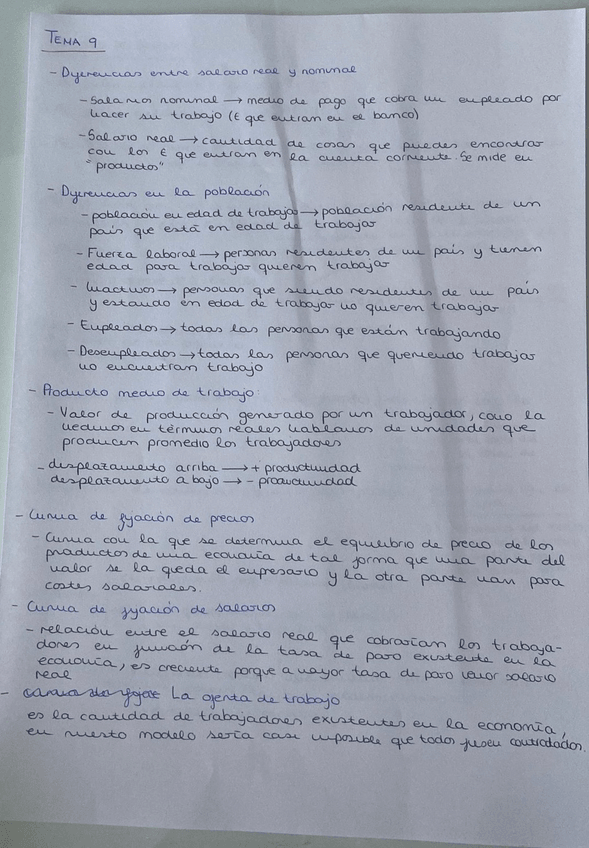 TEMA 9
- Diferencias entre salario real y nominal
- Salarios nominal → medio de pago que cobra un empleado por
hacer su trabajo (€ que entran en el banco)
- Salario real → cantidad de cosas que puedes encontrar
con los € que entran en la cuenta corriente. Se mide en
"productos"
- Diferencias en la población
- población en edad de trabajar → población residente de un
país que está en edad de trabajar
- Fuerza laboral → personas residentes de un país y tienen
edad para trabajar quieren trabajar
- Inactivos → personas que siendo residentes de un país
y estando en edad de trabajar no quieren trabajar
- Empleados → todas las personas que están trabajando
- Desempleados → todas las personas que queriendo trabajar
no encuentran trabajo
- Producto medio de trabajo
- Valor de producción generado por un trabajador, como la
medimos en términos reales hablamos de unidades que
producen promedio los trabajadores
- desplazamento arriba → + productividad
desplazamento abajo → - productividad
- Curva de fijación de precios
- Curva con la que se determina el equilibrio de precio de los
productos de una economía de tal forma que una parte del
valor se la queda el empresario y la otra parte van para
costes salariales.
- Curva de fijación de salarios
- relación entre el salario real que cobrarían los trabaja-
dores en función de la tasa de paro existente en la
economía, es creciente porque a mayor tasa de paro menor salario
real
- La oferta de trabajo
es la cantidad de trabajadores existentes en la economía,
en nuestro modelo sería casi imposible que todos fuesen contratados.